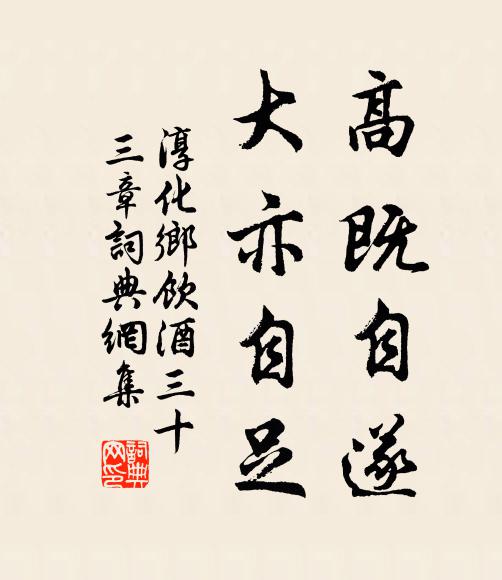 高既自遂
大亦自足
淳化鄉飲酒三十
三章詞典網集
詞典
网印